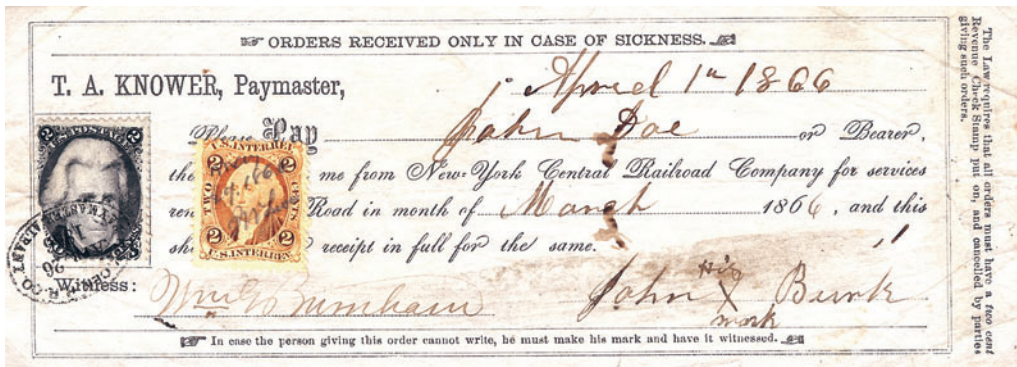 ORDERS RECEIVED ONLY IN CASE OF SICKNESS.
T. A. KNOWER, Paymaster,
April 1st 1866
Please Pay John Doe or Bearer,
the me from New-York Central Railroad Company for services
ren Road in month of March 1866, and this
sh receipt in full for the same.
Witness: Wm G Burnham
John his X mark Burk
In case the person giving this order cannot write, he must make his mark and have it witnessed.
The Law requires that all orders must have a two cent
Revenue Check Stamp put on, and cancelled by parties
giving such orders.
2 POSTAGE 2
U.S. INTER. REV.
2 2
TWO CENTS
2 2
U.S. INTER. REV.
PAYMASTER
ALBANY
26